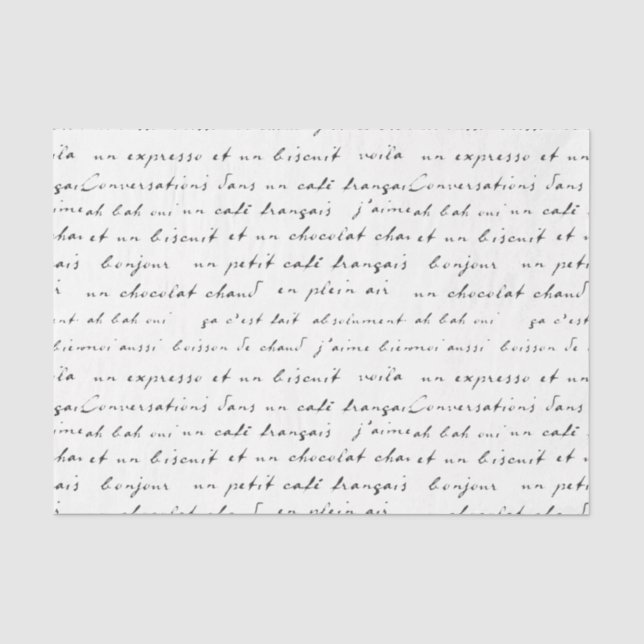 j'
ila un expresso et un biscuit voila un expresso et un
gaiConversations dans un café françaiConversations dans
imeah bah oui un café français j'aimeah bah oui un café
chaiet un biscuit et un chocolat chaiet un biscuit et un
ais bonjour un petit café français bonjour un petit
un chocolat chaud en plein air un chocolat chaud
ent ah bah oui ça c'est fait absolument ah bah oui ça c'est
biermoi aussi boisson de chaud j'aime biermoi aussi boisson de
ila un expresso et un biscuit voila un expresso et un
gaiConversations dans un café françaiConversations dans
imeah bah oui un café français j'aimeah bah oui un café
chaiet un biscuit et un chocolat chaiet un biscuit et un
ais bonjour un petit café français bonjour un petit
un chocolat chaud en plein air un chocolat chaud